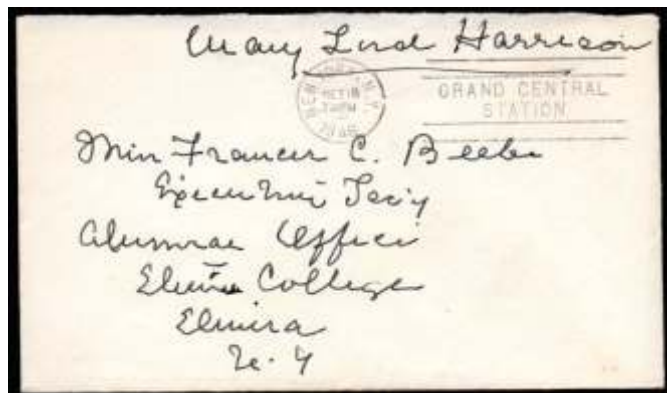 Mary Lord Harrison
NEW YORK, N.Y.
OCT 18
GRAND CENTRAL
STATION
Miss Frances C. Beebe
Executive Sec'y
Alumnae Office
Elmira College
Elmira
N. Y